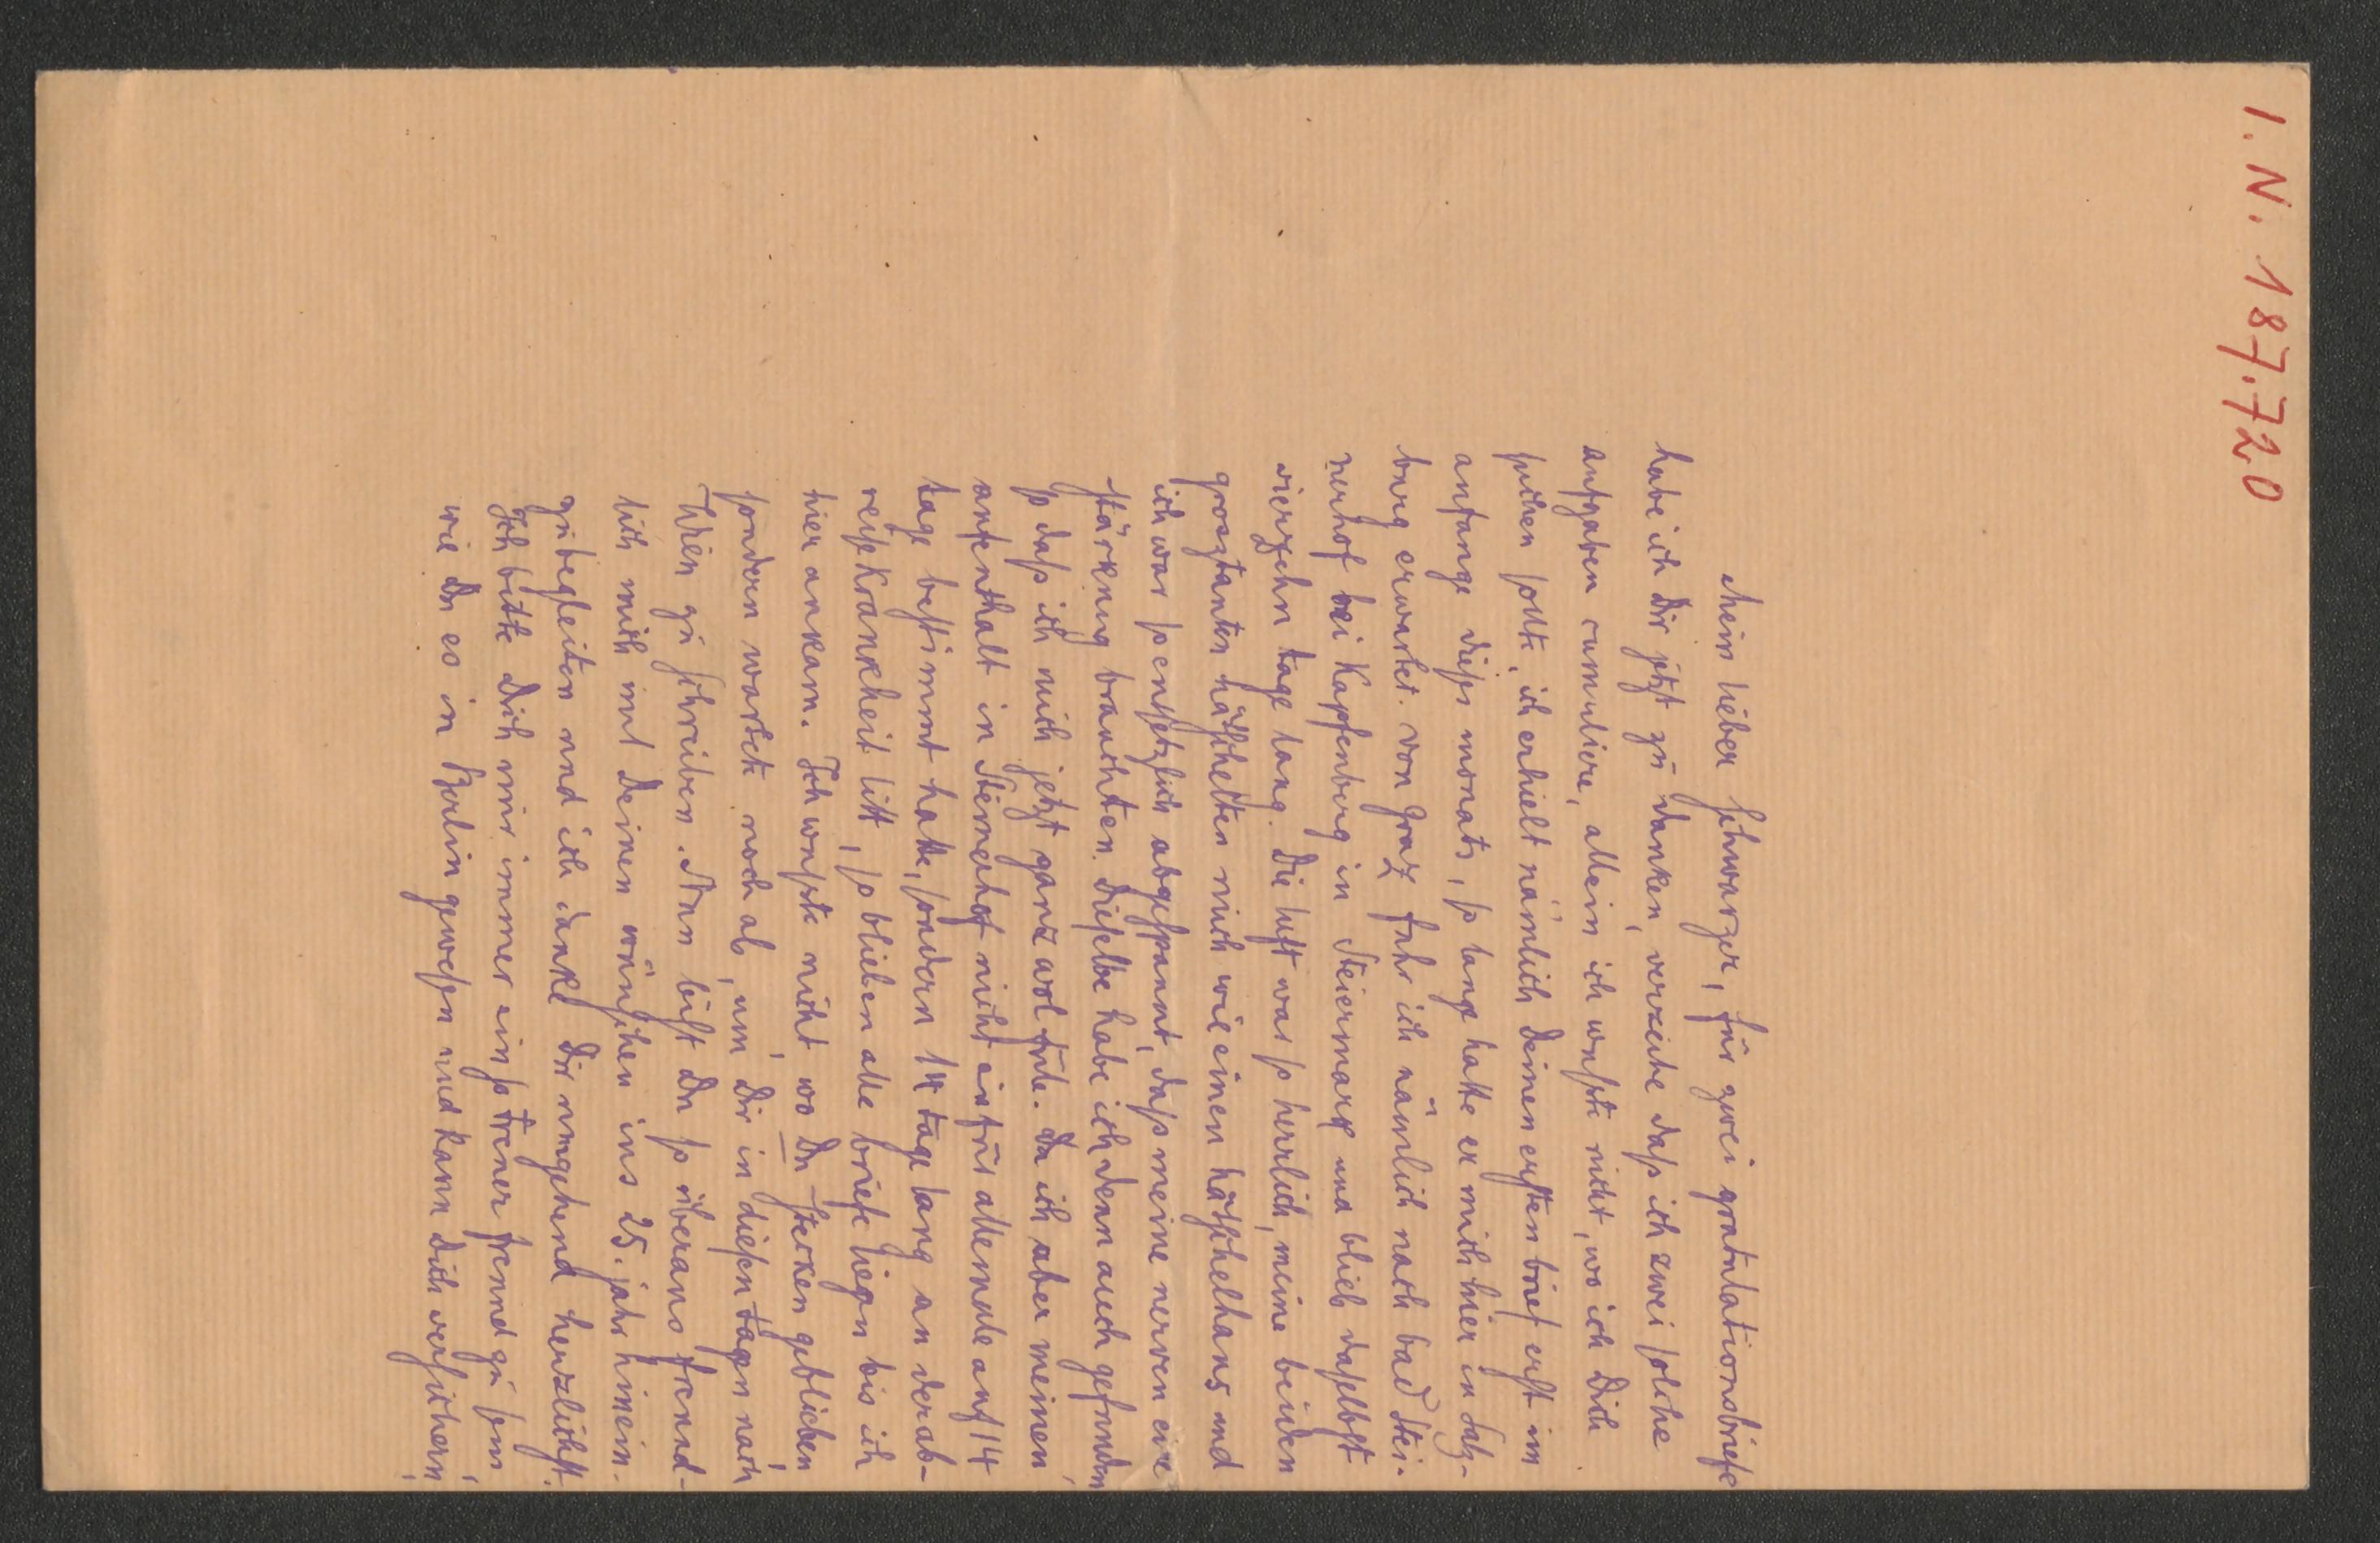 I. N. 187.720
Mein lieber Schwarzer, für zwei gratulationsbriefe
habe ich Dir jetzt zu danken, verzeihe dass ich zwei solche
aufgaben cumuliere, allein ich wusste nicht, wo ich Dich
suchen sollte, ich erhielt nämlich Deinen ersten brief erst im
anfange dieses monats, so lange hatte er mich hier in Salz-
burg erwartet. von Graz fuhr ich nämlich nach bad Stei-
nerhof bei Kapfenberg in Steiermark und blieb daselbst
vierzehn tage lang. Die luft war so herrlich, meine beiden
grosztanten hätschelten mich wie einen hätschelhans und
ich war so entsetzlich abgespannt, dass meine nerven eine
stärkung brauchten. Dieselbe habe ich denn auch gefunden
so dass ich mich jetzt ganz wol fühle. da ich aber meinen
aufenthalt in Steinerhof nicht ein für allemale auf 14
tage bestimmt hatte, sondern 14 tage lang an der ab-
reise Krankheit litt, so blieben alle briefe liegen bis ich
hier ankam. Ich wusste nicht wo Du stecken geblieben
sondern wartete noch ab, um Dir in diesen tagen nach
Wien zu schreiben. Nun bist Du so überaus freund-
lich mich mit Deinen wünschen ins 25. jahr hinein-
zubegleiten und ich danke Dir umgehend herzlichst.
Ich bitte Dich mir immer ein so treuer freund zu sein,
wie Du es in Berlin gewesen und kann Dich versichern,